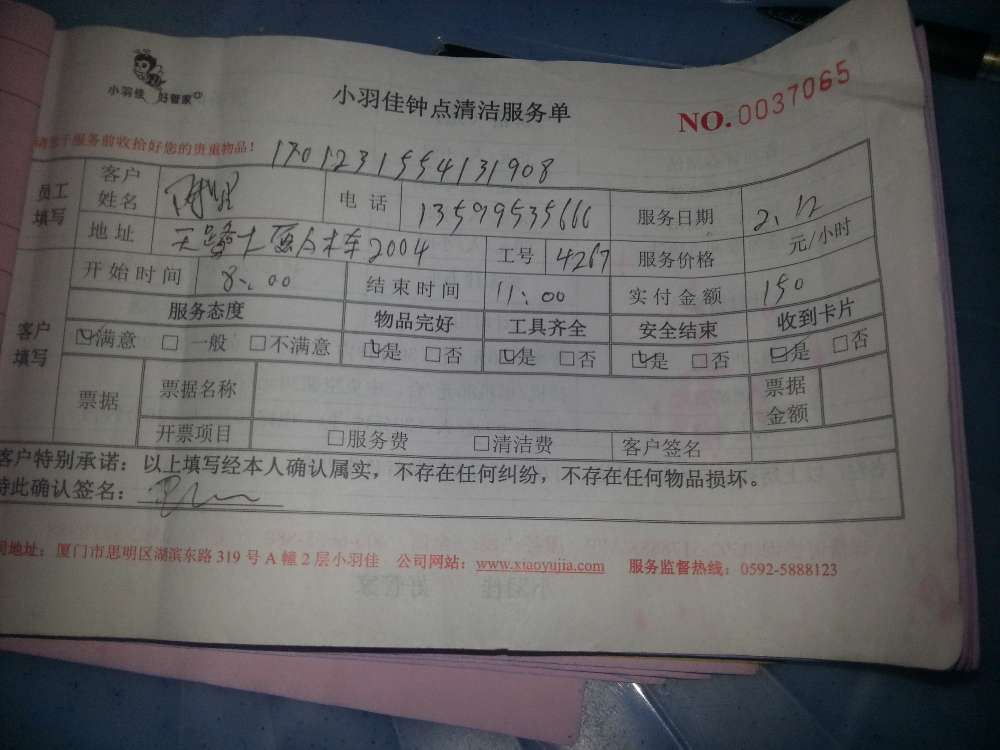 小羽佳 好管家
小羽佳钟点清洁服务单
NO.0037065
请您于服务前收拾好您的贵重物品！
17012315554131908
员工填写 客户姓名 电话 13599535666 服务日期 2.12
地址 2004 工号 4267 服务价格 元/小时
开始时间 8:00 结束时间 11:00 实付金额 150
客户填写 服务态度 物品完好 工具齐全 安全结束 收到卡片
☑满意 □一般 □不满意 ☑是 □否 ☑是 □否 ☑是 □否 ☑是 □否
票据 票据名称 票据金额
开票项目 □服务费 □清洁费 客户签名
客户特别承诺：以上填写经本人确认属实，不存在任何纠纷，不存在任何物品损坏。
特此确认签名：
司地址：厦门市思明区湖滨东路 319 号 A 幢 2 层小羽佳 公司网站：www.xiaoyujia.com 服务监督热线：0592-5888123